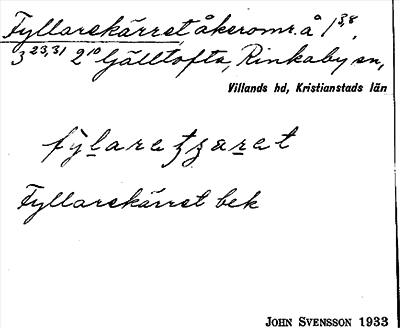 Fyllarekärret, åkeromr. å 1³,⁸,
3²³,³¹ 2¹⁰ Gälltofta, Rinkaby sn,
Villands hd, Kristianstads län
Fyllarekärret bek
JOHN SVENSSON 1933